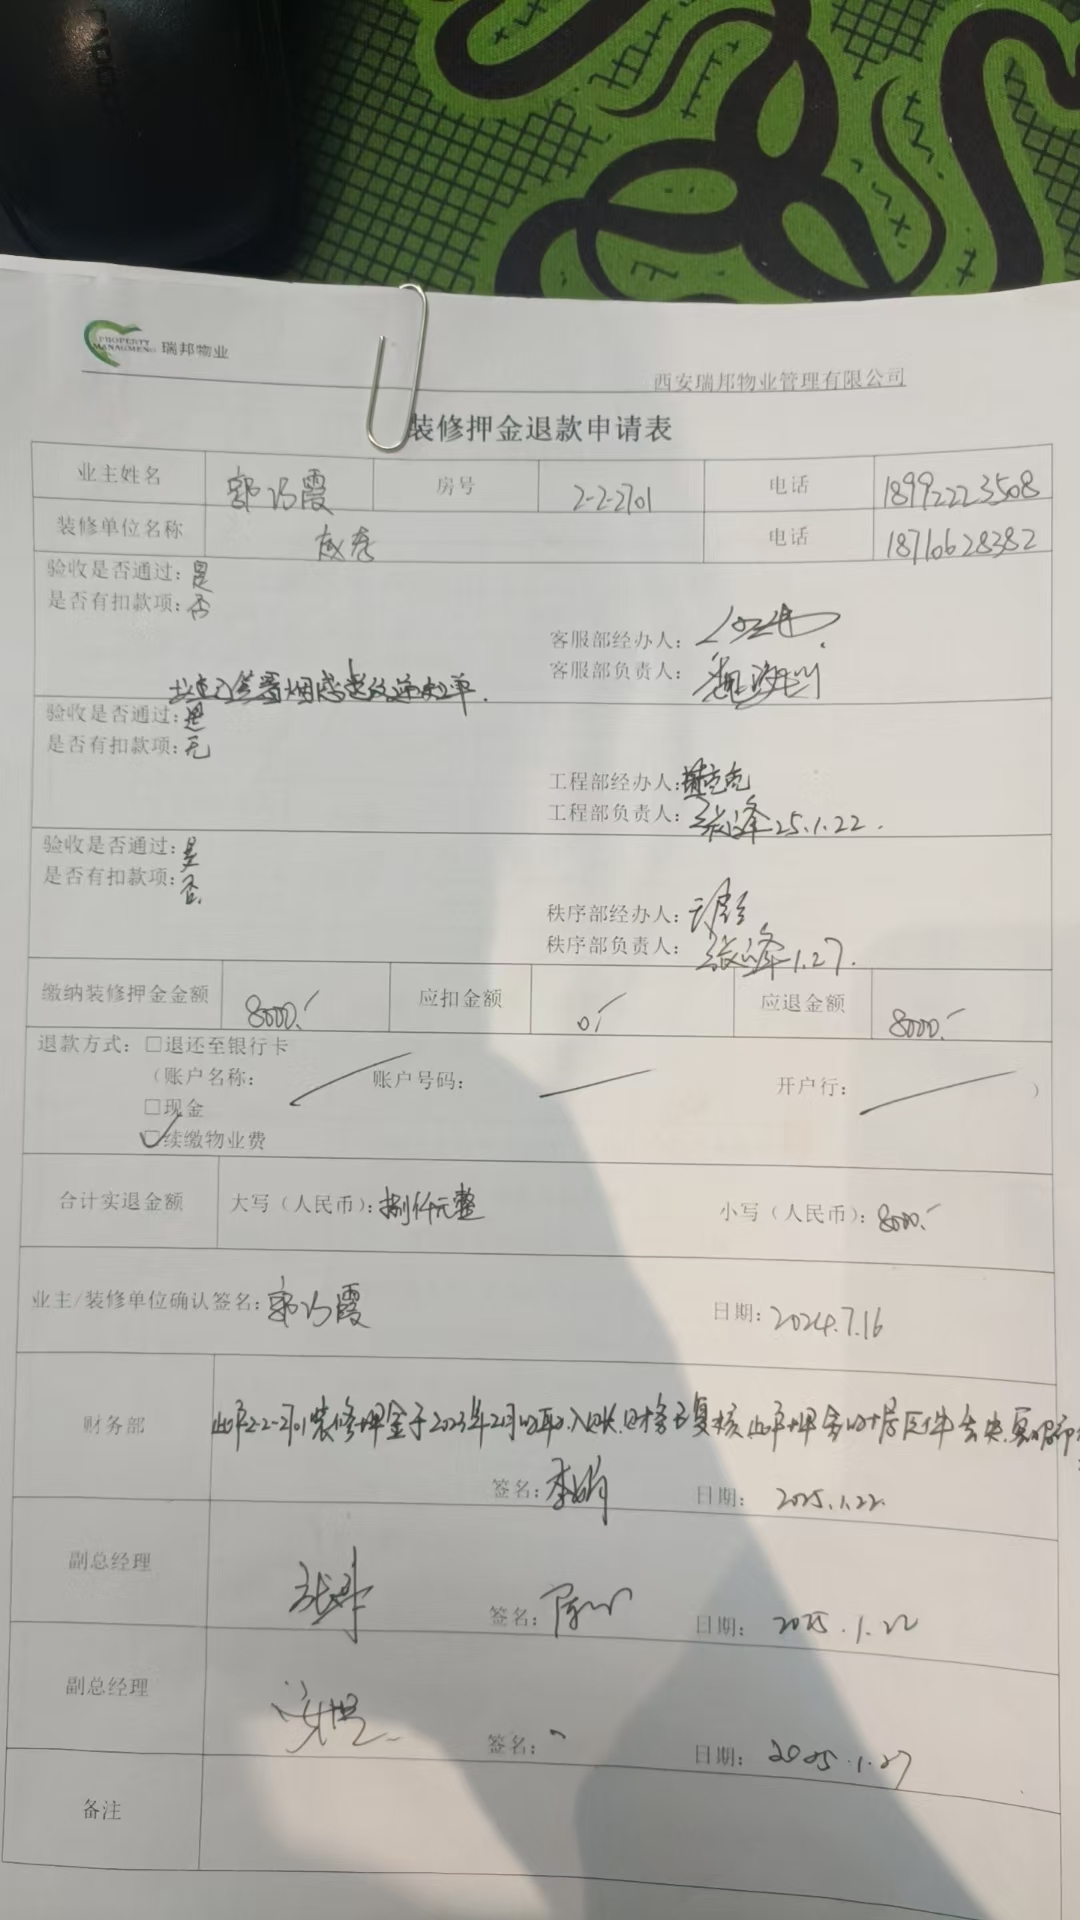 PROPERTY
MANAGMENG 瑞邦物业
西安瑞邦物业管理有限公司
装修押金退款申请表
业主姓名 郭巧霞 房号 2-2-2701 电话 18992223508
装修单位名称 电话 18710628382
验收是否通过：是
是否有扣款项：否
客服部经办人：
客服部负责人：
验收是否通过：是
是否有扣款项：无
工程部经办人：
工程部负责人：张峰 25.1.22.
验收是否通过：是
是否有扣款项：否.
秩序部经办人：
秩序部负责人：张峰 1.27.
缴纳装修押金金额 8000.- 应扣金额 0.- 应退金额 8000.-
退款方式：□退还至银行卡
（账户名称： 账户号码： 开户行： ）
□现金
☑续缴物业费
合计实退金额 大写（人民币）：捌仟元整 小写（人民币）：8000.-
业主/装修单位确认签名：郭巧霞 日期：2024.7.16
财务部 此户2-2-2701装修押金于2023年2月收取入账,财务已复核,此户押金收据原件丢失,
签名：李娟 日期：2025.1.22.
副总经理 签名： 日期：2025.1.22
副总经理 签名： 日期：2025.1.27
备注